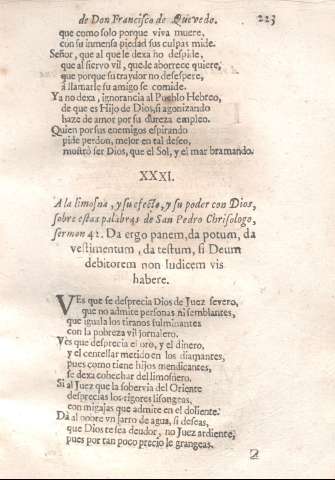 de Don Francisco de Quevedo. 223
que como solo porque viva muere,
con su inmensa piedad sus culpas mide.
Señor, que al que le dexa no despide,
que al siervo vil, que le aborrece quiere,
que porque su traydor no desespere,
a llamarle su amigo se comide.
Ya no dexa, ignorancia al Pueblo Hebreo,
de que es Hijo de Dios, si agonizando
haze de amor por su dureza empleo.
Quien por sus enemigos espirando
pide perdon, mejor en tal deseo,
mostró ser Dios, que el Sol, y el mar bramando.
XXXI.
A la limosna, y su efecto, y su poder con Dios,
sobre estas palabras de San Pedro Chrisologo,
sermon 42. Da ergo panem, da potum, da
vestimentum, da tectum, si Deum
debitorem non Iudicem vis
habere.
VEs que se desprecia Dios de Juez severo,
que no admite personas ni semblantes,
que iguala los tiranos fulminantes
con la pobreza vil jornalero.
Vès que desprecia el oro, y el dinero,
y el centellar metido en los diamantes,
pues como tiene hijos mendicantes,
se dexa cohechar del limosnero.
Si al Juez que la sobervia del Oriente
desprecias los rigores lisongeas,
con migajas que admite en el doliente.
Dà al pobre vn jarro de agua, si deseas,
que Dios te sea deudor, no Juez ardiente,
pues por tan poco precio le grangeas.